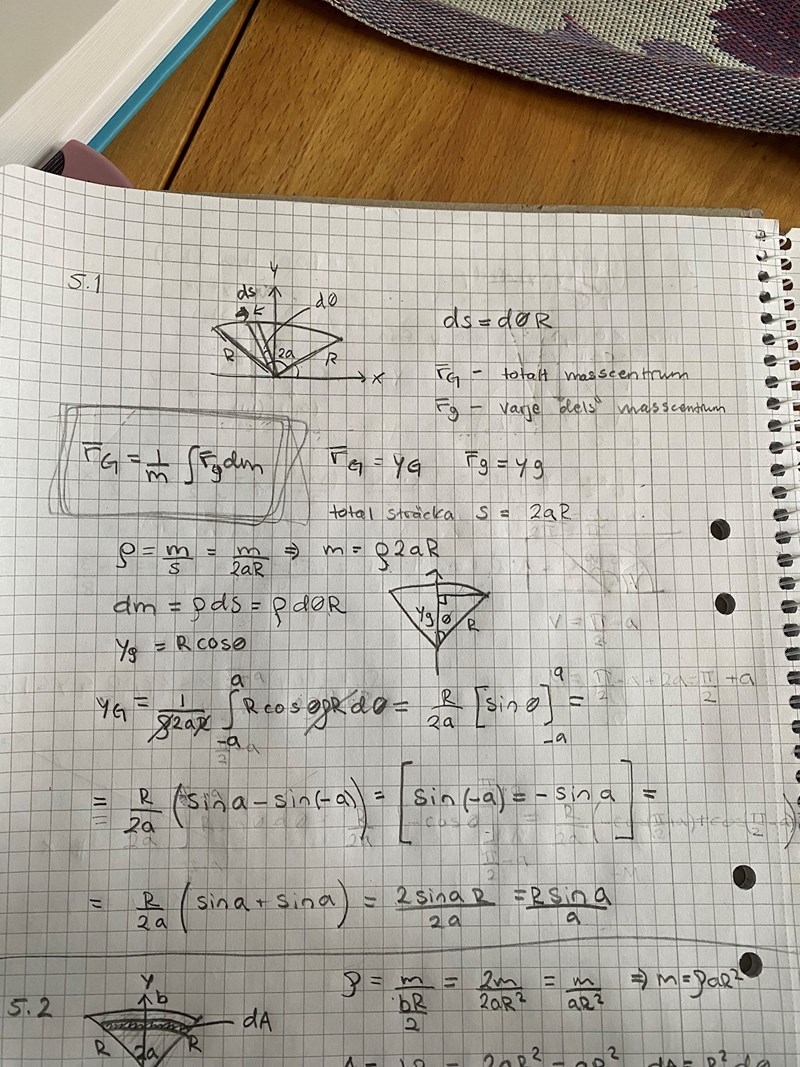 5.1
y
ds
dθ
R 2a R
x
ds = dθR
r̄G - totalt masscentrum
r̄g - varje "dels" masscentrum
r̄G = 1/m ∫ r̄g dm
r̄G = yG r̄g = yg
total sträcka s = 2aR
ρ = m/s = m/2aR ⇒ m = ρ2aR
dm = ρds = ρdθR
yg θ R
yg = Rcosθ
yG = 1/ρ2aR ∫_{-a}^{a} Rcosθ ρR dθ = R/2a [sinθ]_{-a}^{a} =
= R/2a (sina - sin(-a)) = [sin(-a) = -sina] =
= R/2a (sina + sina) = 2sinaR/2a = Rsina/a
5.2
y
b
dA
R 2a R
ρ = m/(bR/2) = 2m/2aR² = m/aR² ⇒ m = ρaR²